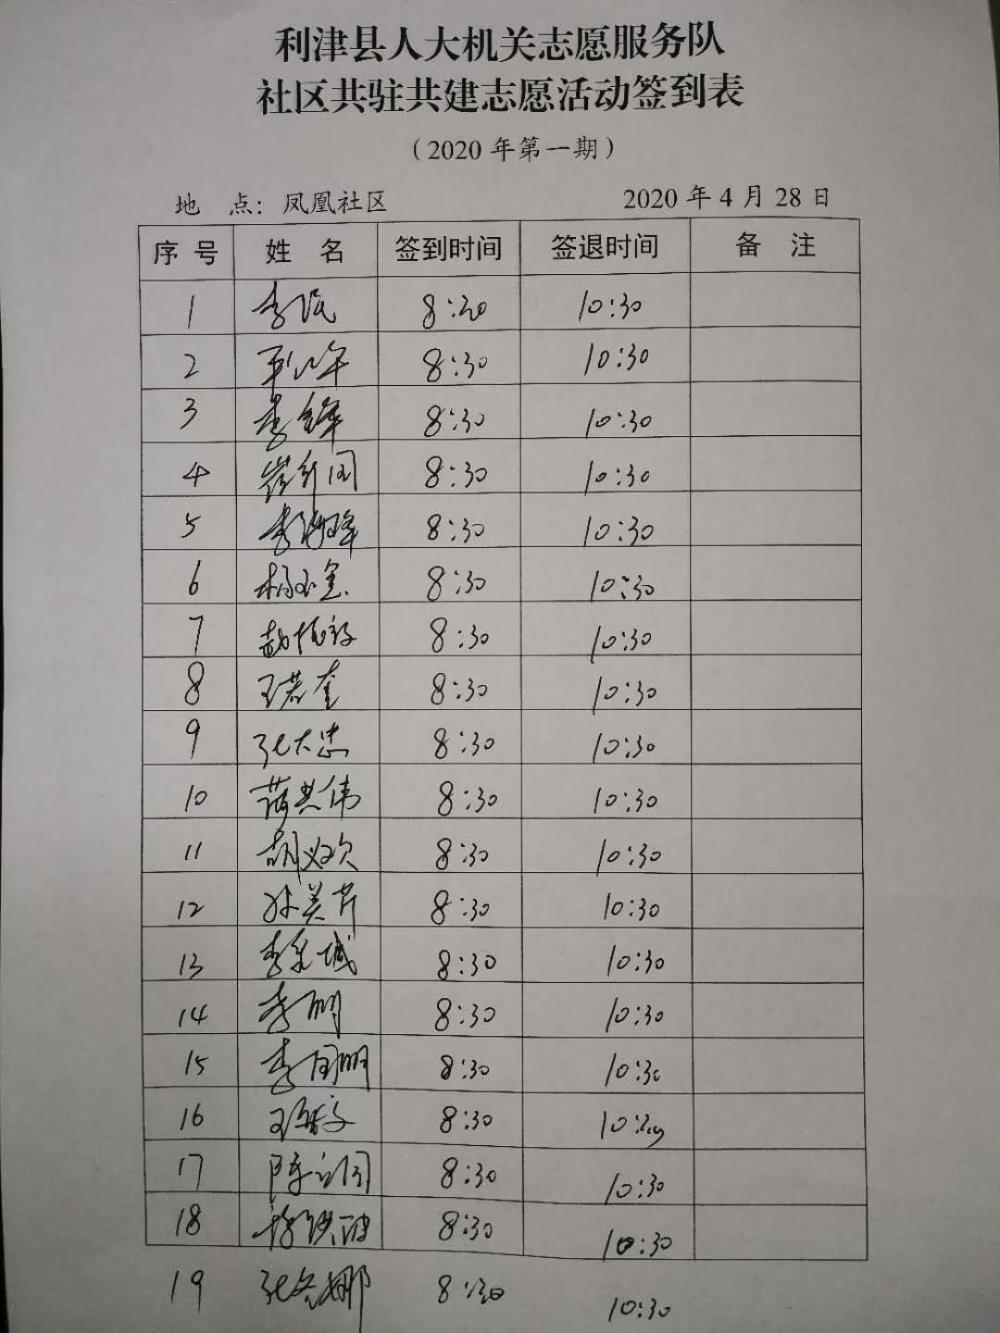 利津县人大机关志愿服务队
社区共驻共建志愿活动签到表
（2020 年第一期）
地 点：凤凰社区 2020 年 4 月 28 日
序 号 姓 名 签到时间 签退时间 备 注
1 李民 8:20 10:30
2 8:30 10:30
3 李锋 8:30 10:30
4 崔新国 8:30 10:30
5 李海峰 8:30 10:30
6 杨玉宝 8:30 10:30
7 8:30 10:30
8 王若奎 8:30 10:30
9 张大忠 8:30 10:30
10 8:30 10:30
11 胡义欢 8:30 10:30
12 孙美芹 8:30 10:30
13 8:30 10:30
14 李明 8:30 10:30
15 李国明 8:30 10:30
16 8:30 10:30
17 陈立国 8:30 10:30
18 8:30 10:30
19 8:30 10:30